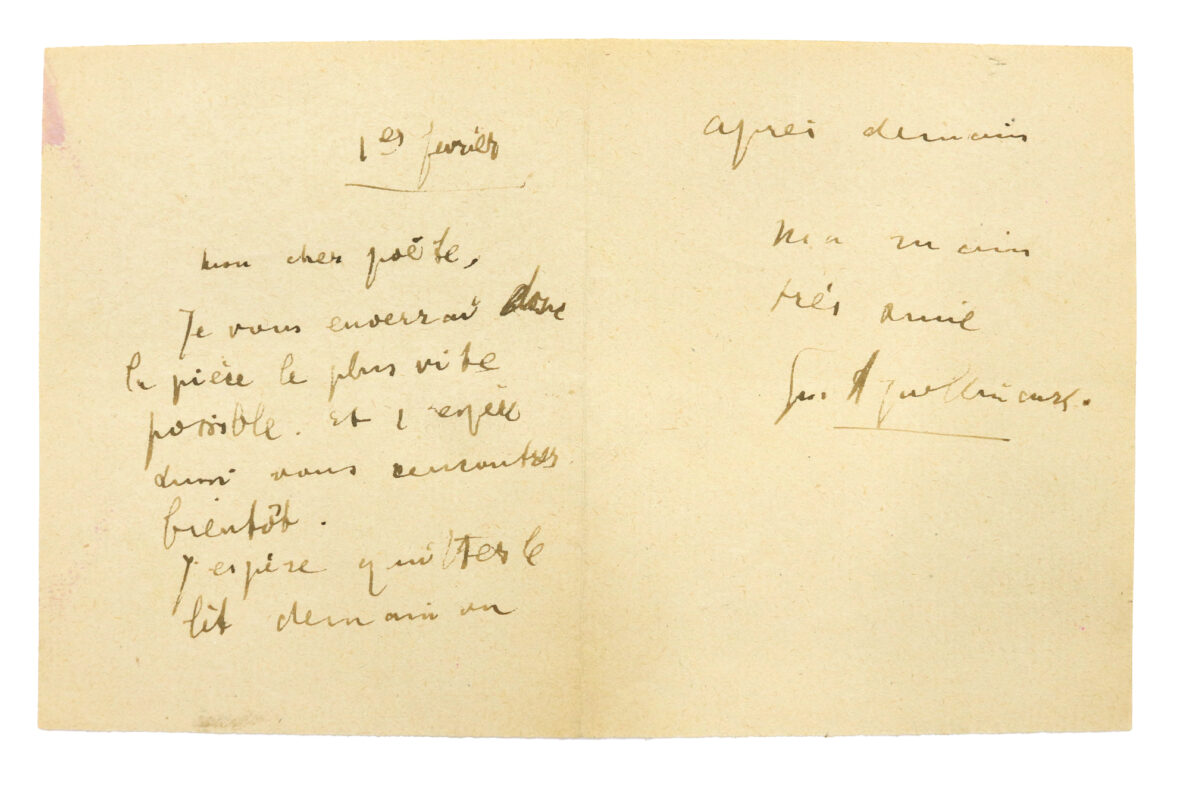 1er février
mon cher poète,
Je vous enverrai donc
la pièce le plus vite
possible. Et j espère
aussi vous rencontrer
bientôt.
J espère quitter le
lit demain ou
après demain
Ma main
très amie
Gui Apollinaire.